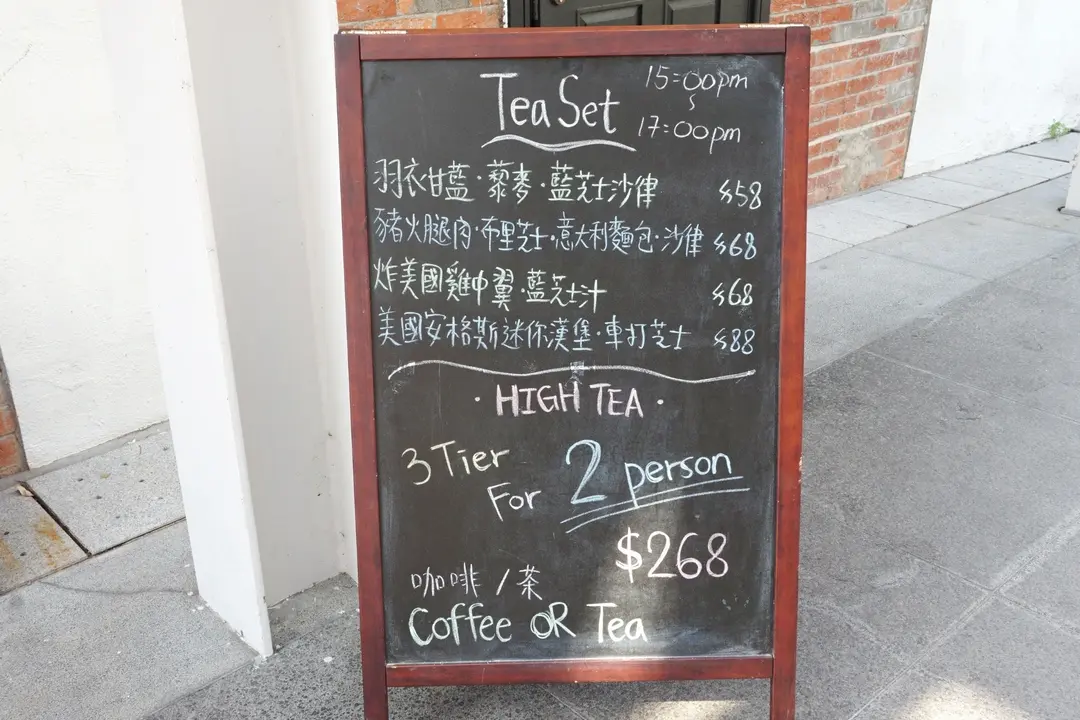 Tea Set 15:00pm
~
17:00pm
羽衣甘藍·藜麥·藍芝士沙律 $58
豬火腿肉·布里芝士·意大利麵包·沙律 $68
炸美國雞中翼·藍芝士汁 $68
美國安格斯迷你漢堡·車打芝士 $88
· HIGH TEA ·
3 Tier
For 2 person
$268
咖啡 / 茶
Coffee OR Tea